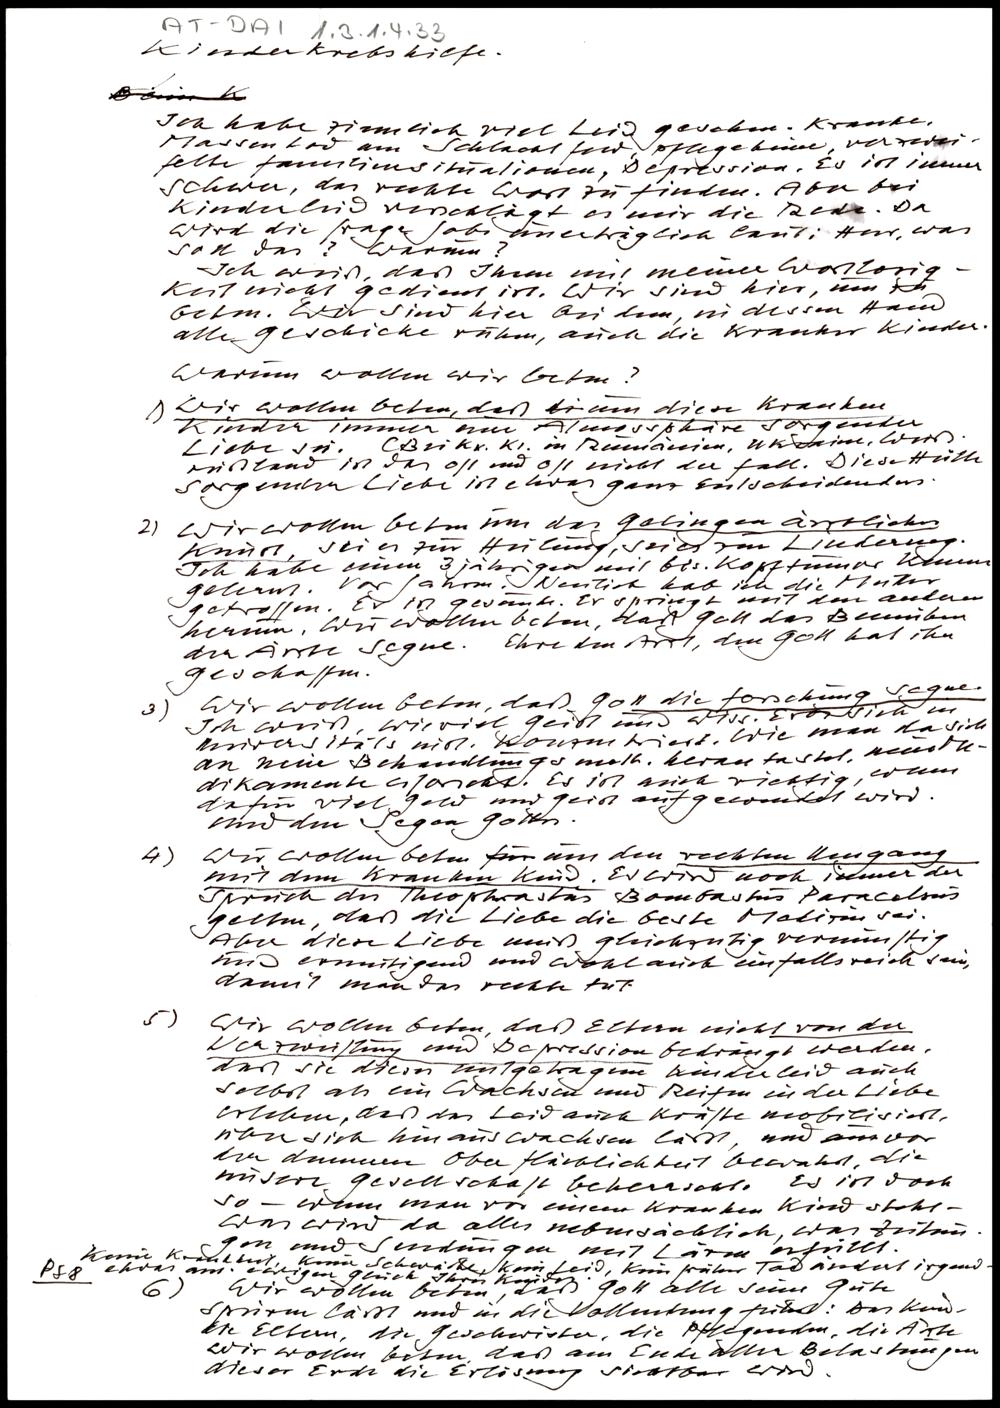 AT-DAI 1.3.1.4.33
Kinderkrebshilfe.
Beim K
Ich habe ziemlich viel Leid gesehen. Kranke,
Massentod am Schlachtfeld, Pflegeheime, verzwei-
felte Familiensituationen, Depression. Es ist immer
schwer, das rechte Wort zu finden. Aber bei
Kinderleid verschlägt es mir die Rede. Da
wird die Frage Jobs unerträglich laut: Herr, was
soll das? Warum?
Ich weiß, daß Ihnen mit meiner Wortlosig-
keit nicht gedient ist. Wir sind hier, um zu
beten. Wir sind hier bei dem, in dessen Hand
alle Geschicke ruhen, auch die kranker Kinder.
Warum wollen wir beten?
1) Wir wollen beten, daß um diese kranken
Kinder immer eine Atmosphäre sorgender
Liebe sei. (Bei kr. Ki. in Rumänien, Ukraine, Weiß-
rußland ist das oft und oft nicht der Fall. Diese Hülle
sorgender Liebe ist etwas ganz Entscheidendes.
2) Wir wollen beten um das Gelingen ärztlicher
Kunst, sei es zur Heilung, sei es zur Linderung.
Ich habe einen 3jährigen mit bös. Kopftumor kennen
gelernt. Vor Jahren. Neulich hab ich die Mutter
getroffen. Er ist gesund. Er springt mit den anderen
herum. Wir wollen beten, daß Gott das Bemühen
der Ärzte segne. Ehre den Arzt, denn Gott hat ihn
geschaffen.
3) Wir wollen beten, daß Gott die Forschung segne.
Ich weiß, wieviel Geist und wiss. sich in
Universitäts inst. konzentriert. Wie man da sich
an neue Behandlungsmeth. heran tastet, neue Me-
dikamente erforscht. Es ist auch richtig, wenn
dafür viel Geld und Geist aufgewendet wird.
Und den Segen Gottes.
4) Wir wollen beten für um den rechten Umgang
mit dem kranken Kind. Es wird noch immer der
Spruch des Theophrastus Bombastus Paracelsus
gelten, daß die Liebe die beste Medizin sei.
Aber diese Liebe muß gleichzeitig vernünftig
und ermutigend und wohl auch einfallsreich sein,
damit man das rechte tut.
5) Wir wollen beten, daß Eltern nicht von der
Verzweiflung und Depression bedrängt werden,
daß sie dieses mitgetragene Kinderleid auch
selbst als ein Wachsen und Reifen in der Liebe
erleben, daß das Leid auch Kräfte mobilisiert,
über sich hinauswachsen läßt, und uns vor
der dummen Oberflächlichkeit bewahrt, die
unsere Gesellschaft beherrscht. Es ist doch
so – wenn man vor einem kranken Kind steht –
was wird da alles nebensächlich, was Zeitun-
gen und Sendungen mit Lärm erfüllt.
Keine Krankheit, keine Schwäche, kein Leid, kein früher Tod ändert irgend-
PS 8 etwas am ewigen Glück Ihres Kindes.
6) Wir wollen beten, daß Gott alle seine Güte
spüren läßt und in die Vollendung führt: Das Kind,
die Eltern, die Geschwister, die Pflegenden, die Ärzte
Wir wollen beten, daß am Ende aller Belastungen
dieser Erde die Erlösung sichtbar wird.